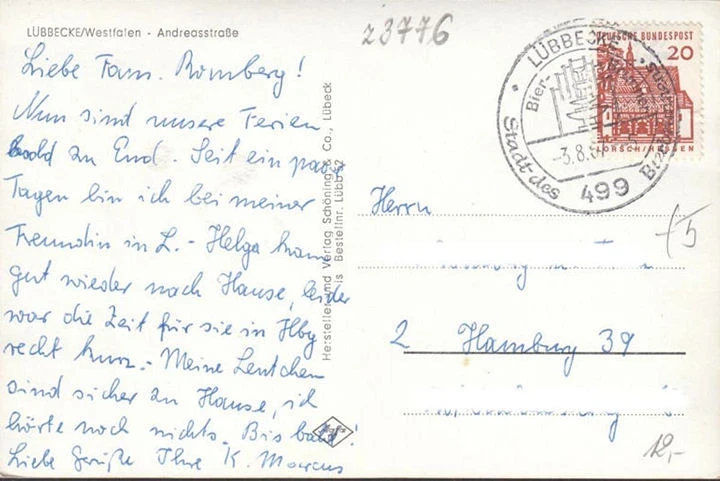 LÜBBECKE/Westfalen - Andreasstraße
23776
Liebe Fam. Romberg!
Nun sind unsere Ferien
bald zu End. Seit ein paar
Tagen bin ich bei meiner
Freundin in L. - Helga kam
gut wieder nach Hause, leider
war die Zeit für sie in Hbg
recht kurz. - Meine Leutchen
sind sicher zu Hause, ich
hörte noch nichts. Bis bald!
Liebe Grüße Ihre K. Marcus
Hersteller und Verlag Schöning & Co., Lübeck
Bestellnr. Lübb 52
LÜBBECKE
Bier-
Stadt des
-3.8.6
499
DEUTSCHE BUNDESPOST
20
LORSCH/HESSEN
Herrn
2 Hamburg 39
5
12,-